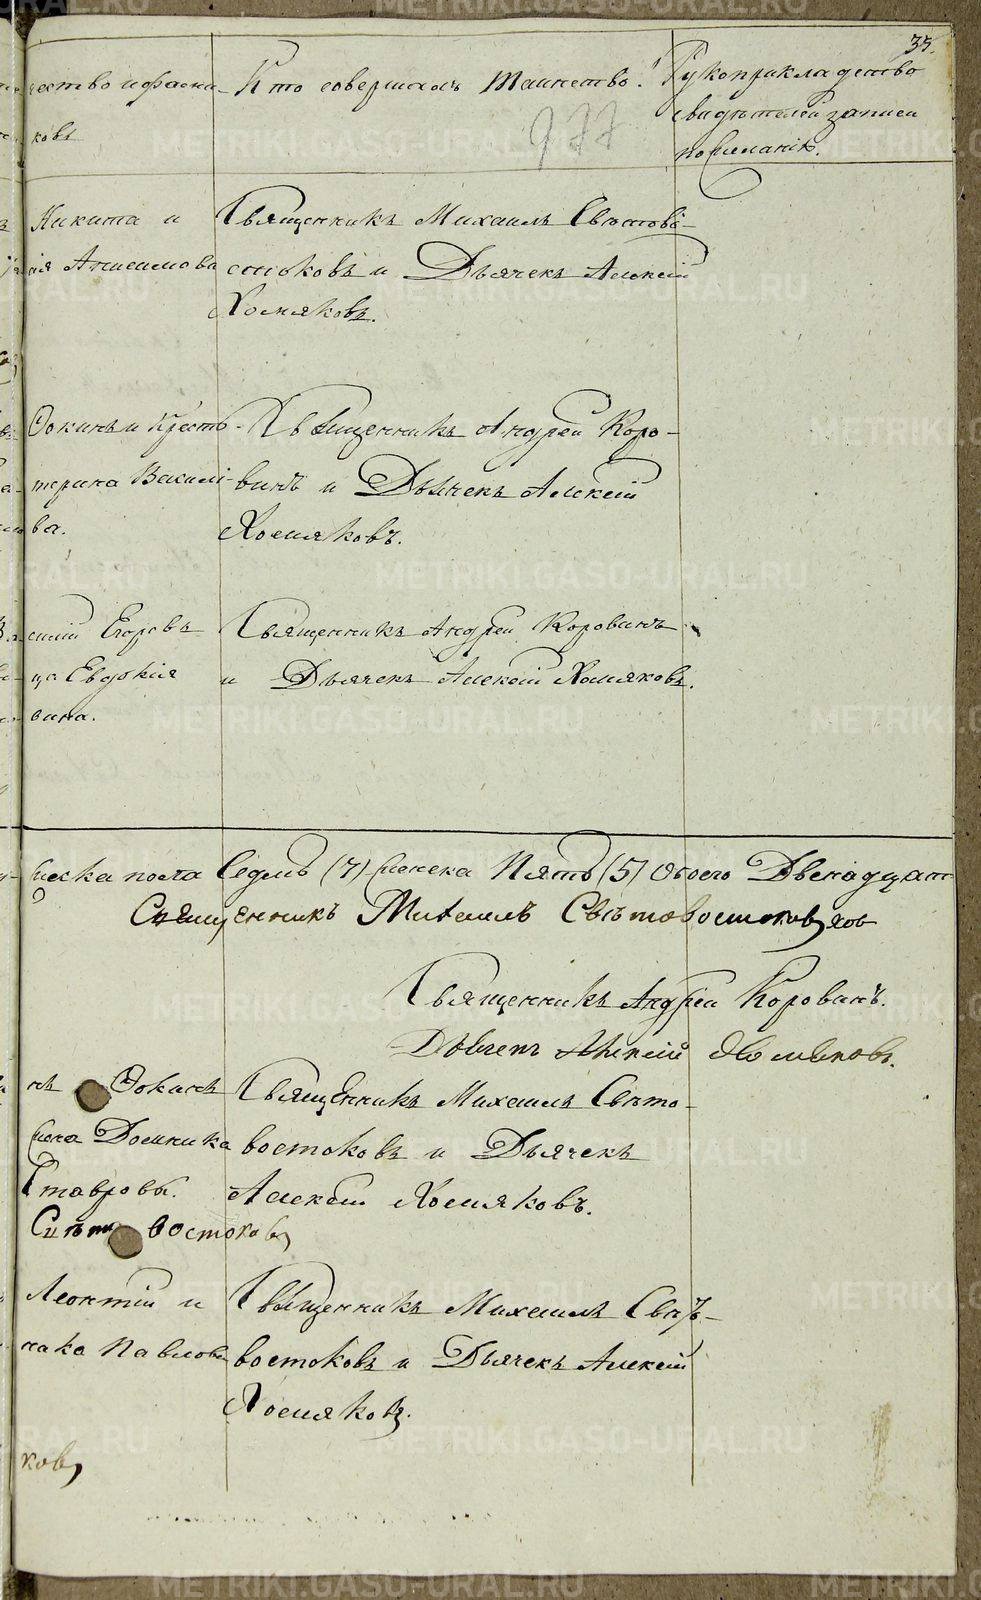 35.
чество и фами-
ковъ
Кто совершалъ таинство.
Рукоприкладство
свидѣтелей записи
по желанію.
977
Никита и
Анисимова
Священникъ Михаилъ Свѣтово-
стоковъ и Дьячекъ Алексій
Хомяковъ.
Фокинъ и Кресть-
терина Василі-
ва.
Священникъ Андрей Коро-
винъ и Дьячекъ Алексій
Хомяковъ.
силій Егоровъ
ца Евдокія
вина.
Священникъ Андрей Коровинъ
и Дьячекъ Алексій Хомяковъ.
Женска пола Седмь (7) Мужеска Пять (5) Обоего Двенадцат
Священникъ Михаилъ Свѣтовостоковъ
Священникъ Андрей Коровинъ.
Дьячекъ Алексій Хомяковъ.
нъ Фокинъ
жена Домника
Ставровы.
Свѣтовостоковъ
Священникъ Михаилъ Свѣто-
востоковъ и Дьячекъ
Алексій Хомяковъ.
Леонтій и
Павлова
Священникъ Михаилъ Свѣто-
востоковъ и Дьячекъ Алексій
Хомяковъ.
ковъ
METRIKI.GASO-URAL.RU